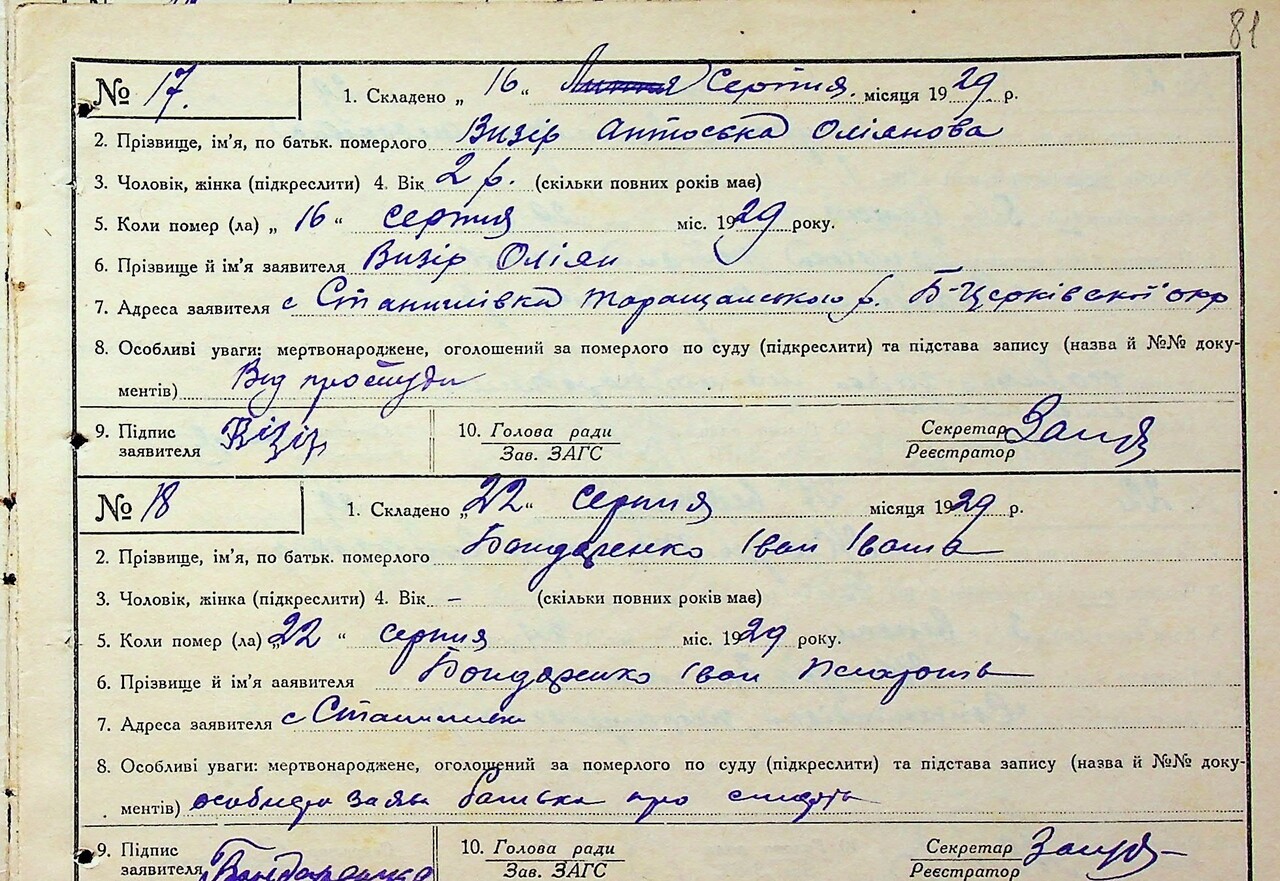 81
№ 17. 1. Складено „ 16 “ Липня Серпня місяця 1929 р.
2. Прізвище, ім'я, по батьк. померлого Визір Антоська Оліянова
3. Чоловік, жінка (підкреслити) 4. Вік 2 р. (скільки повних років має)
5. Коли помер (ла) „ 16 “ серпня міс. 1929 року.
6. Прізвище й ім'я заявителя Визір Оліян
7. Адреса заявителя с Станишівка Таращанського р. Б-Церківської окр
8. Особливі уваги: мертвонароджене, оголошений за померлого по суду (підкреслити) та підстава запису (назва й №№ доку-
ментів) Від простуди
9. Підпис заявителя Візір 10. Голова ради Зав. ЗАГС Секретар Реєстратор
№ 18 1. Складено „ 22 “ серпня місяця 1929 р.
2. Прізвище, ім'я, по батьк. померлого Бондаренко Іван Івана
3. Чоловік, жінка (підкреслити) 4. Вік – (скільки повних років має)
5. Коли помер (ла) „ 22 “ серпня міс. 1929 року.
6. Прізвище й ім'я заявителя Бондаренко Іван
7. Адреса заявителя с
8. Особливі уваги: мертвонароджене, оголошений за померлого по суду (підкреслити) та підстава запису (назва й №№ доку-
ментів) особиста заява батька про смерть
9. Підпис заявителя Бондаренко 10. Голова ради Зав. ЗАГС Секретар Реєстратор